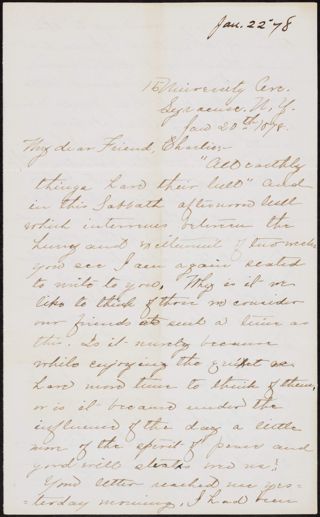 Jan. 22 '78
University Ave.
Syracuse. N. Y.
Jan 20th 1878.
My dear Friend, Charlie:-
"All earthly
things have their lull" and
in this Sabbath afternoon lull
which intervenes between the
hurry and excitement of two weeks
you see I am again seated
to write to you, Why is it we
like to think of those we consider
our friends at such a time as
this. Is it merely because
while enjoying the quiet we
have more time to think of them,
or is it because under the
influence of the day a little
more of the spirit of peace and
good will steals over us?
Your letter reached me yes-
-terday morning, I had been